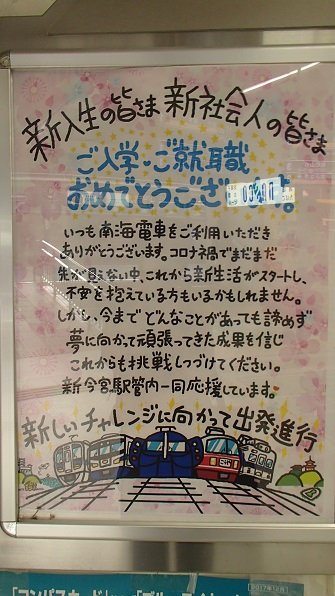 新入生の皆さま 新社会人の皆さま
ご入学・ご就職
おめでとうござ
いつも南海電車をご利用いただき
ありがとうございます。コロナ禍でまだまだ
先が見えない中、これから新生活がスタートし、
不安を抱えている方もいるかもしれません。
しかし、今までどんなことがあっても諦めず
夢に向かって頑張ってきた成果を信じ
これからも挑戦しつづけてください。
新今宮駅管内一同応援しています。
新しいチャレンジに向かって出発進行